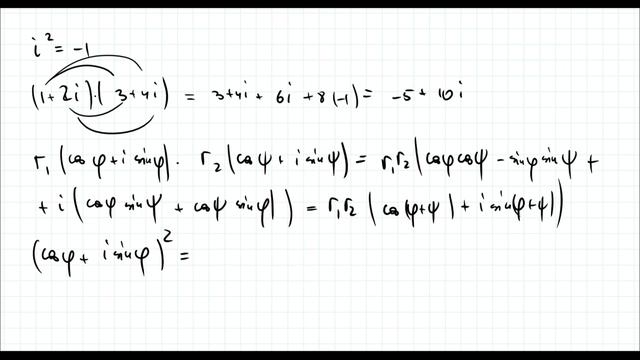 i² = -1
(1+2i)·(3+4i) = 3+4i + 6i + 8(-1) = -5 + 10i
r₁(cosφ + i sinφ) · r₂(cosψ + i sinψ) = r₁r₂(cosφ cosψ - sinφ sinψ +
+ i(cosφ sinψ + cosψ sinφ)) = r₁r₂(cos(φ+ψ) + i sin(φ+ψ))
(cosφ + i sinφ)² =